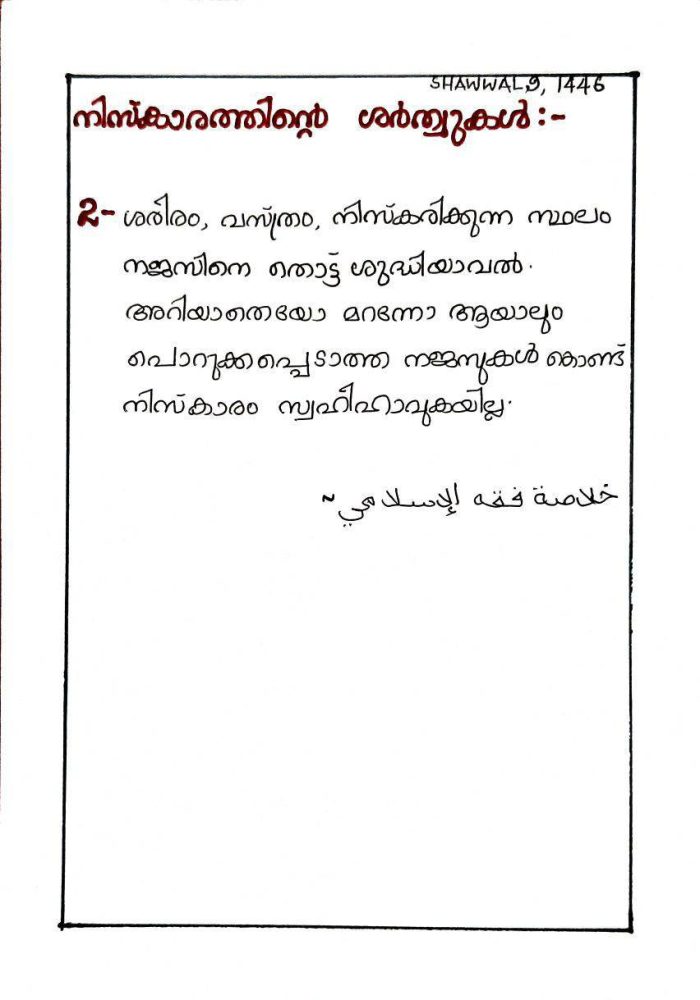 SHAWWAL 9, 1446
നിസ്കാരത്തിന്റെ ശർത്വുകൾ :-
2- ശരീരം, വസ്ത്രം, നിസ്കരിക്കുന്ന സ്ഥലം
നജസിനെ തൊട്ട് ശുദ്ധിയാവൽ.
അറിയാതെയോ മറന്നോ ആയാലും
പൊറുക്കപ്പെടാത്ത നജസുകൾ കൊണ്ട്
നിസ്കാരം സ്വഹീഹാവുകയില്ല.
خلاصة فقه الإسلامي~